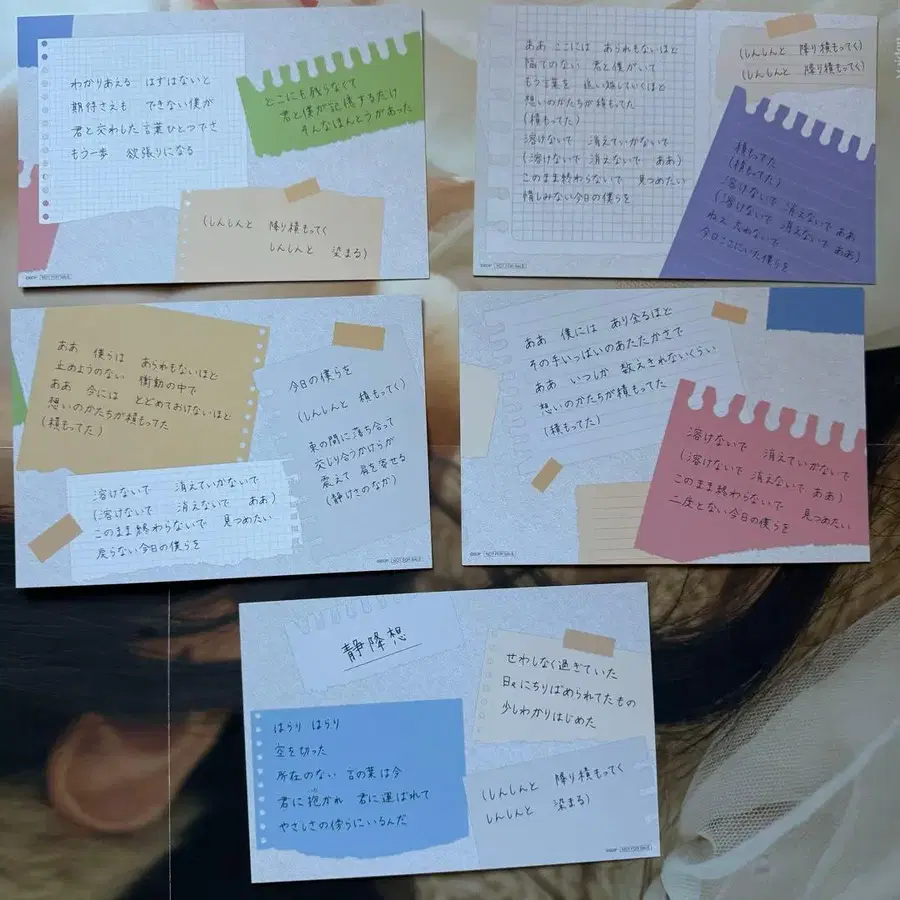 わかりあえる はずはないと
期待さえも できない僕が
君と交わした言葉ひとつでさ
もう一歩 欲張りになる
どこにも残らなくて
君と僕が記憶するだけ
そんなほんとうがあった
(しんしんと 降り積もってく
しんしんと 染まる)
NOT FOR SALE
ああ ここには あられもないほど
隔てのない 君と僕がいて
もう言葉を 追い越していくほど
想いのかたちが積もってた
(積もってた)
溶けないで 消えていかないで
(溶けないで 消えないで ああ)
このまま終わらないで 見つめたい
惜しみない今日の僕らを
(しんしんと 降り積もってく)
(しんしんと 降り積もってく)
積もってた
(積もってた)
溶けないで 消えないで ああ
(溶けないで 消えないで ああ)
ねえ 忘れないで
今日ここにいた僕らを
NOT FOR SALE
ああ 僕らは あられもないほど
止めようのない 衝動の中で
ああ 今には とどめておけないほど
想いのかたちが積もってた
(積もってた)
溶けないで 消えていかないで
(溶けないで 消えないで ああ)
このまま終わらないで 見つめたい
戻らない今日の僕らを
今日の僕らを
(しんしんと 積もってく)
束の間に落ち合って
交じり合うかけらが
震えて 肩を寄せる
(静けさのなか)
NOT FOR SALE
ああ 僕には あり余るほど
その手いっぱいのあたたかさで
ああ いつしか 数えきれないくらい
想いのかたちが積もってた
(積もってた)
溶けないで 消えていかないで
(溶けないで 消えないで ああ)
このまま終わらないで 見つめたい
二度とない今日の僕らを
NOT FOR SALE
静降想
せわしなく過ぎていた
日々にちりばめられてたもの
少しわかりはじめた
はらり はらり
空を切った
所在のない 言の葉は今
君に抱かれ 君に運ばれて
やさしさの傍らにいるんだ
(しんしんと 降り積もってく
しんしんと 染まる)
NOT FOR SALE